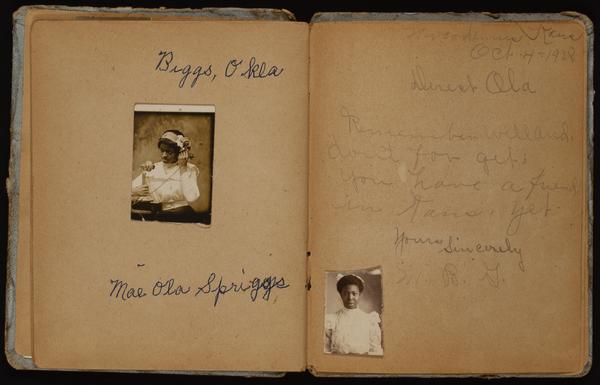 Biggs, Okla
Mae Ola Spriggs
Kans
Oct-4-1928
Derest Ola
Remember well and
don't for get
you have a frend
in Kans, yet
Yours Sincerely
M. B. G.